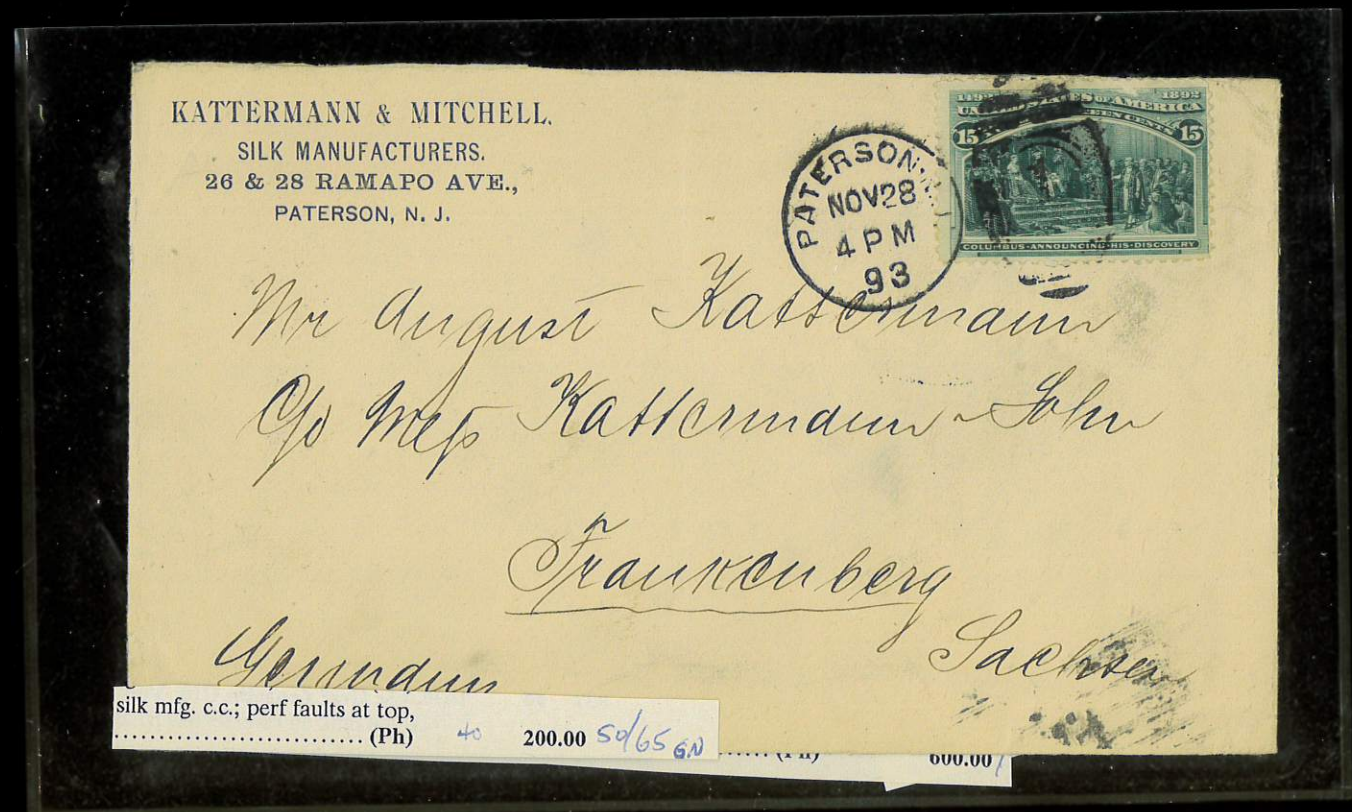 KATTERMANN & MITCHELL.
SILK MANUFACTURERS.
26 & 28 RAMAPO AVE.,
PATERSON, N. J.
PATERSON, N.J.
NOV 28
4 PM
93
1492 1892
UNITED STATES OF AMERICA
FIFTEEN CENTS
15 15
COLUMBUS ANNOUNCING HIS DISCOVERY
1
Mr August Kattermann
C/o Mess Kattermann & Sohn
Frankenberg
Sachsen
Germany
silk mfg. c.c.; perf faults at top,
............................ (Ph) 40 200.00 50/65 GN
........ (Ph) 600.00